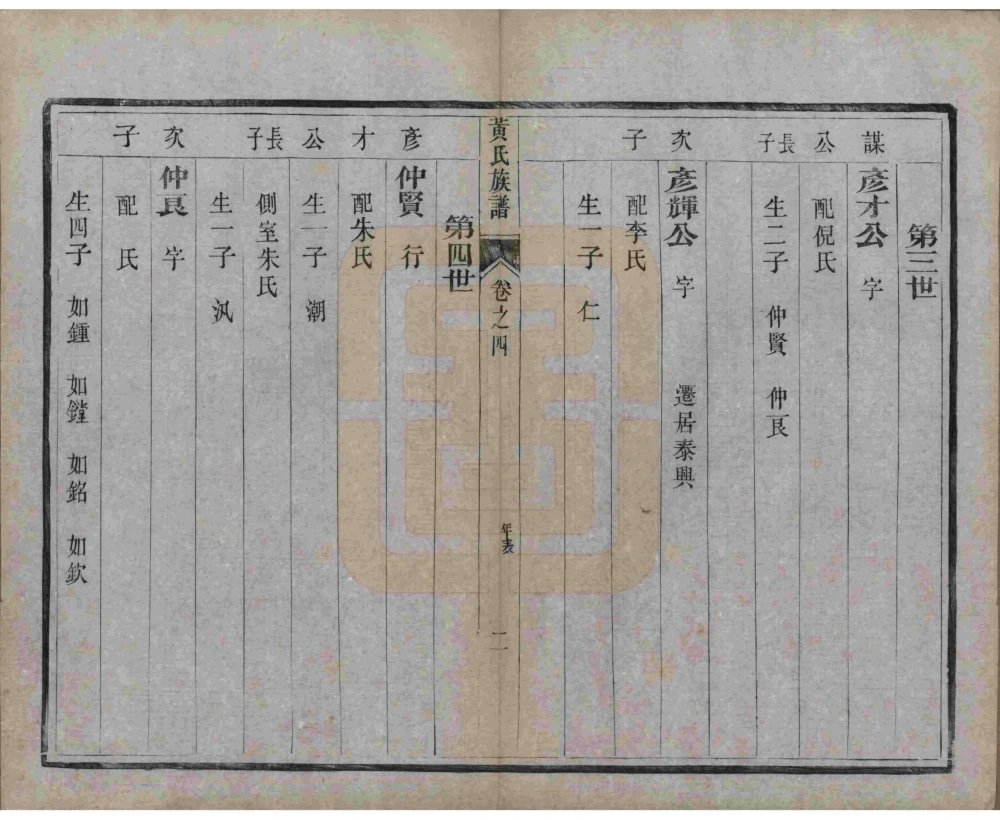 第三世
謀 彥才公 字
公 配倪氏
長子 生二子 仲賢 仲良
次 彥輝公 字 遷居泰興
子 配李氏
生一子 仁
黃氏族譜 卷之四 年表 二
第四世
彥 仲賢 行
才 配朱氏
公 生一子 潮
長子 側室朱氏
生一子 汎
次 仲良 字
子 配 氏
生四子 如鍾 如鏜 如銘 如欽